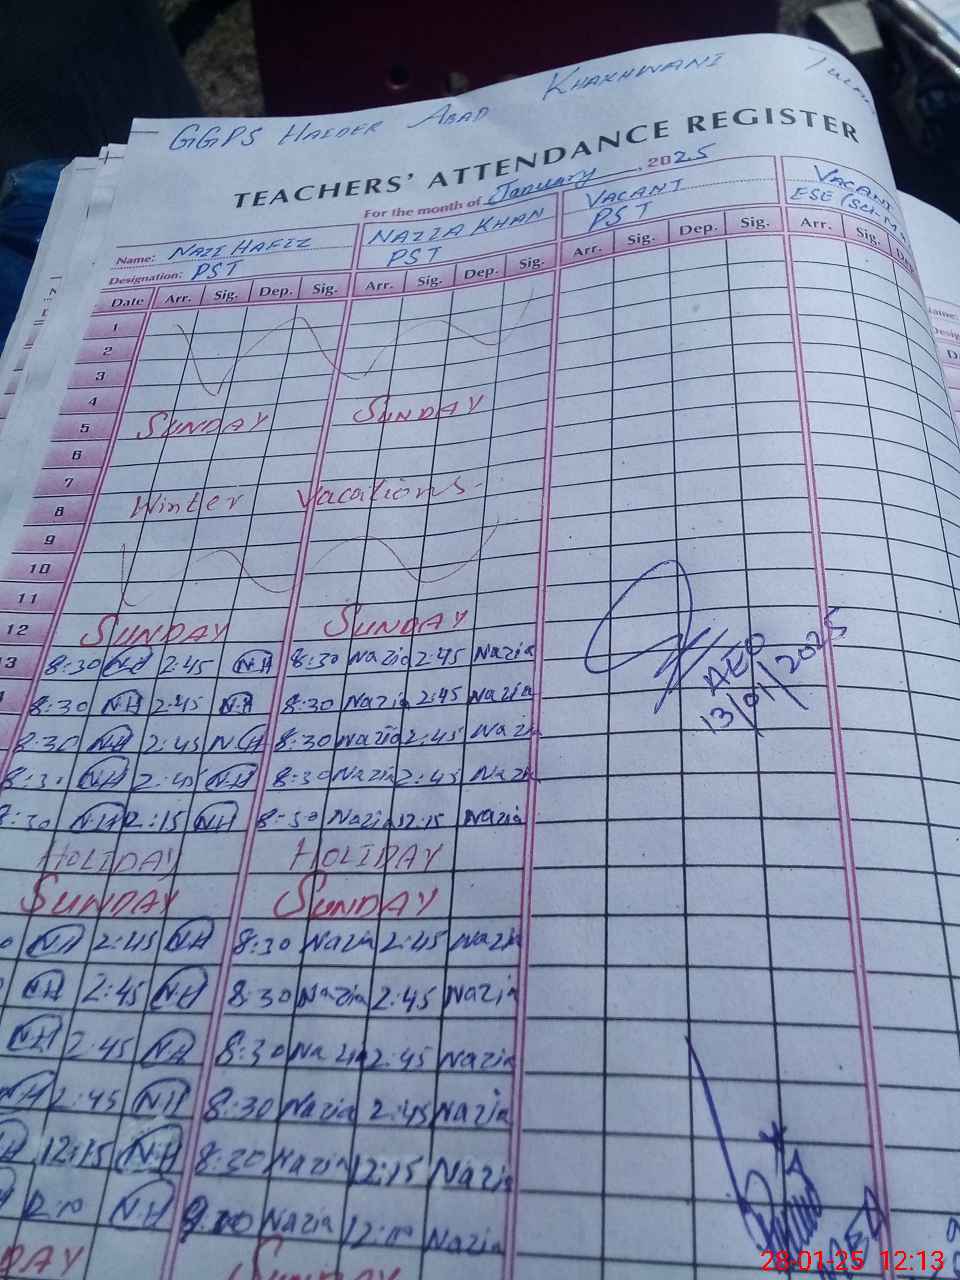 GGPS HAEDER ABAD KHAKHWANI
TEACHERS' ATTENDANCE REGISTER
For the month of January, 2025
Name: NAZI HAFIZ NAZIA KHAN VACANT VACANT
Designation: PST PST PST ESE (SCI-M
Date Arr. Sig. Dep. Sig. Arr. Sig. Dep. Sig. Arr. Sig. Dep. Sig. Arr. Sig.
1
2
3
4
5 SUNDAY SUNDAY
6
7
8 Winter Vacations.
9
10
11
12 SUNDAY SUNDAY
13 8:30 N.H 2:45 N.H 8:30 Nazia 2:45 Nazia
8:30 N.H 2:45 N.H 8:30 Nazia 2:45 Nazia
8:30 N.H 2:45 N.H 8:30 Nazia 2:45 Nazia
8:30 N.H 2:45 N.H 8:30 Nazia 2:45 Nazia
8:30 N.H 12:15 N.H 8:30 Nazia 12:15 Nazia
HOLIDAY HOLIDAY
SUNDAY SUNDAY
N.H 2:45 N.H 8:30 Nazia 2:45 Nazia
N.H 2:45 N.H 8:30 Nazia 2:45 Nazia
N.H 2:45 N.H 8:30 Nazia 2:45 Nazia
N.H 2:45 N.H 8:30 Nazia 2:45 Nazia
H 12:15 N.H 8:30 Nazia 12:15 Nazia
N.H Nazia Nazia
DAY SUNDAY
AEO
13/01/2025
28-01-25 12:13